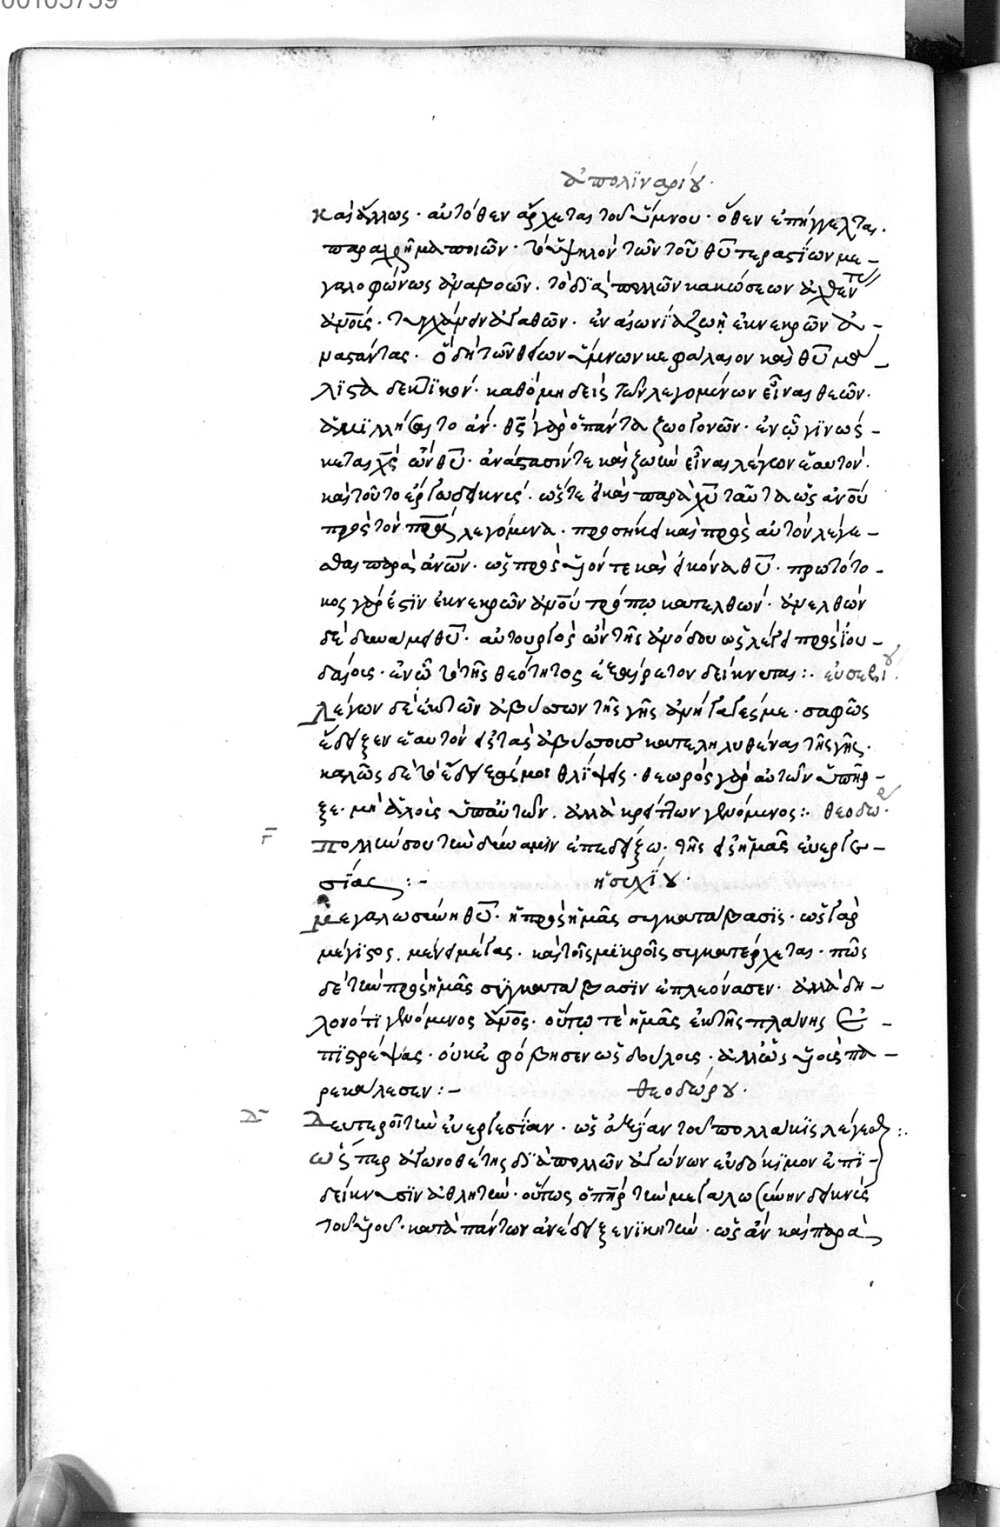 00103759
ἀπολϊναρίου·
καὶ ἄλλως· αὐτόθεν ἄρχεται τοῦ ὕμνου· ὅθεν ἐπήγγελται·
παραχρῆμα ποιῶν· τὸ ὑψηλὸν τῶν τοῦ θυ τεραστίων με-
γαλοφώνως ἀναβοῶν· τὸ διὰ πολλῶν κακώσεων ἀχθέντας
ἀνοις· ἀγαθῶν· ἐν αἰωνίᾳ ζωῇ ἐκ νεκρῶν ἀ-
ναστάντας· ὃ δὴ τῶν θείων ὕμνων κεφάλαιον καὶ θυ μά-
λιστα δεικτϊκόν· καθὸ μηδεὶς τῶν λεγομένων εἶναι θεῶν·
ἀμϊλλήσαιτο ἄν· θς γὰρ ὁ πάντα ζωογονῶν· ἐν ᾧ γϊνώσ-
κεται χς ὢν θυ· ἀνάστασίν τε καὶ ζωὴν εἶναι λέγων ἑαυτόν·
καὶ τοῦτο ἔργω δεικνύς· ὥστε εἰ καὶ παρὰ χυ ταῦτα ὡς ἀνου
πρὸς τὸν πρα λεγόμενα· προσήκει καὶ πρὸς αὐτὸν λέγε-
σθαι παρὰ ἀνων· ὡς πρὸς υἱόν τε καὶ εἰκόνα θυ· πρωτότο-
κος γάρ ἐστϊν ἐκ νεκρῶν ἀνου τρόπω κατελθών· ἀνελθὼν
δὲ δυνάμει θυ· αὐτουργὸς ὢν τῆς ἀνόδου ὡς λέγει πρὸς ἰου-
δαίους· ἐν ᾧ τὸ τῆς θεότητος ἐξαίρετον δείκνυται:· εὐσεβίου·
λέγων δὲ ἐκ τῶν ἀβύσσων τῆς γῆς ἀνήγαγές με· σαφῶς
ἔδειξεν ἑαυτὸν εἰς τὰς ἀβύσσους κατεληλυθέναι τῆς γῆς·
καλῶς δὲ τὸ ἔδειξάς μοι θλίψεις· θεωρὸς γὰρ αὐτῶν ὑπῆρ-
ξε· μὴ ἁλοὺς ὑπ' αὐτῶν· ἀλλὰ κρείττων γενόμενος:· θεοδώρ·
Γ πολλήν σου τὴν δύναμϊν ἐπεδείξω· τῆς εἰς ἡμᾶς εὐεργε-
σίας:- ἡσυχΐου·
μεγαλωσύνη θυ· ἡ πρὸς ἡμᾶς συγκατάβασϊς· ὡς γὰρ
μέγϊστος· μένει μέγας· καὶ τοῖς μϊκροῖς συγκατέρχεται· πῶς
δὲ τὴν πρὸς ἡμᾶς συγκατάβασϊν ἐπλεόνασεν· ἀλλὰ δη-
λονότϊ γενόμενος ἄνος· οὕτω τὲ ἡμᾶς ἐκ τῆς πλάνης ἐ-
πϊστρέψας· οὐκ ἐφόβησεν ὡς δούλους· ἀλλ' ὡς υἱοὺς πα-
ρεκάλεσεν:- θεοδώρου·
Δ Δευτεροῖ τὴν εὐεργεσΐαν· ὡς ἀξίαν τοῦ πολλάκϊς λέγεσθ:·
ὥσπερ ἀγωνοθέτης δϊὰ πολλῶν ἀγώνων εὐδόκϊμον ἐπϊ-
δείκνυσϊν ἀθλητήν· οὕτως ὁ πηρ τὴν μεγαλωσύνην δεικνύς
τοῦ υἱοῦ· κατὰ πάντων ἀνέδειξε νϊκητήν· ὡς ἂν καὶ παρὰ